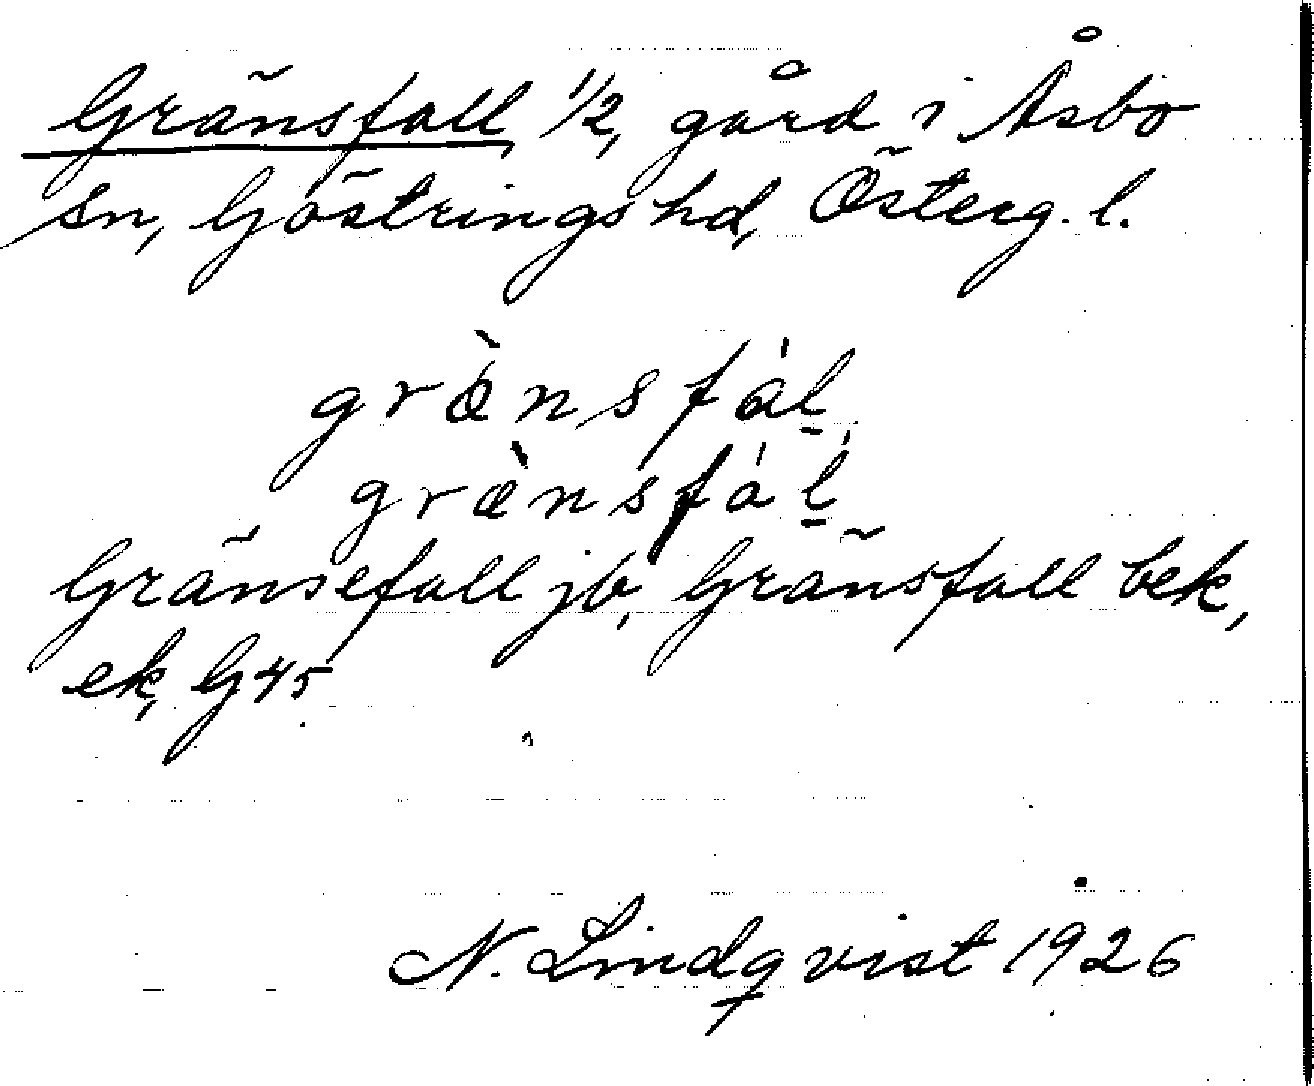 Gränsfall, 1/2, gård i Åsbo
sn, Göstrings hd, Österg. l.
græ̀nsfál̲
græ̀nsfáĺ̲
Gränsefall jb, Gränsfall bek,
ek, G45
N. Lindqvist 1926